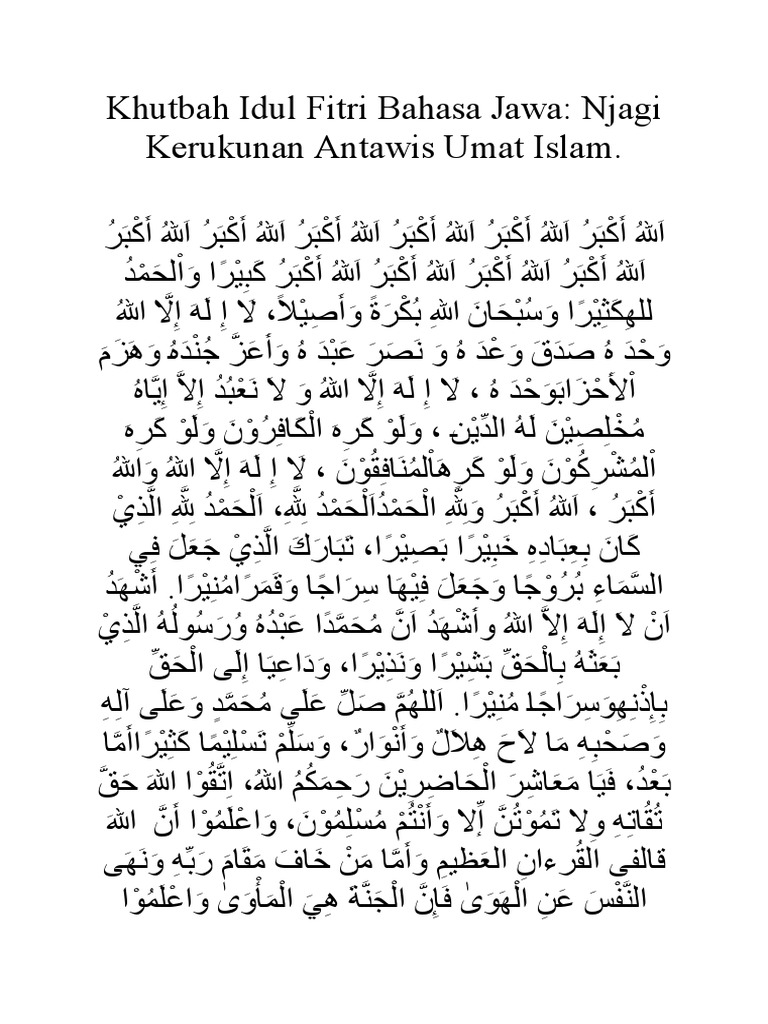 Khutbah Idul Fitri Bahasa Jawa: Njagi
Kerukunan Antawis Umat Islam.
اَللهُ أَكْبَرُ اَللهُ أَكْبَرُ اَللهُ أَكْبَرُ اَللهُ أَكْبَرُ اَللهُ أَكْبَرُ اَللهُ أَكْبَرُ
اَللهُ أَكْبَرُ اَللهُ أَكْبَرُ اَللهُ أَكْبَرُ اَللهُ أَكْبَرُ كَبِيْرًا وَاْلحَمْدُ
للهِكَثِيْرًا وَسُبْحَانَ اللهِ بُكْرَةً وَأَصِيْلاً، لَا إِ لَهَ إِلَّا اللهُ
وَحْدَ هُ صَدَقَ وَعْدَ هُ وَ نَصَرَ عَبْدَ هُ وَأَعَزَّ جُنْدَهُ وَهَزَمَ
اْلأَحْزَابَوَحْدَ هُ ، لَا إِ لَهَ إِلَّا اللهُ وَ لاَ نَعْبُدُ إِلاَّ إِيَّاهُ
مُخْلِصِيْنَ لَهُ الدِّيْنِ ، وَلَوْ كَرِه الْكَافِرُوْنَ وَلَوْ كَرِهَ
اْلمُشْرِكُوْنَ وَلَوْ كَرِهَاْلمُنَافِقُوْنَ ، لَا إِ لَهَ إِلَّا اللهُ وَاللهُ
أَكْبَرُ ، اَللهُ أَكْبَرُ وَلِلَّهِ الْحَمْدُاَلْحَمْدُ لِلَّهِ، اَلْحَمْدُ لِلَّهِ الَّذِيْ
كَانَ بِعِبَادِهِ خَبِيْرًا بَصِيْرًا، تَبَارَكَ الَّذِيْ جَعَلَ فِي
السَّمَاءِ بُرُوْجًا وَجَعَلَ فِيْهَا سِرَاجًا وَقَمَرًامُنِيْرًا. أَشْهَدُ
اَنْ لاَ إِلَهَ إِلاَّ اللهُ وأَشْهَدُ اَنَّ مُحَمَّدًا عَبْدُهُ وُرَسُولُهُ الَّذِيْ
بَعَثَهُ بِالْحَقِّ بَشِيْرًا وَنَذِيْرًا، وَدَاعِيَا إِلَى الْحَقِّ
بِإِذْنِهِوَسِرَاجًا مُنِيْرًا. اَللهُمَّ صَلِّ عَلَي مُحَمَّدٍ وَعَلَى آلِهِ
وَصَحْبِهِ مَا لاَحَ هِلاَلٌ وَأَنْوَارٌ، وَسَلِّمْ تَسْلِيْمًا كَثِيْرًاأَمَّا
بَعْدُ، فَيَا مَعَاشِرَ الْحَاضِرِيْنَ رَحِمَكُمُ اللهُ، اِتَّقُوْا اللهَ حَقَّ
تُقَاتِهِ وِلا تَمُوْتُنَّ إِلا وَأَنْتُمْ مُسْلِمُوْنَ، وَاعْلَمُوْا أَنَّ اللهَ
قالفى القُرءانِ العَظِيمِ وَأَمَّا مَنْ خَافَ مَقَامَ رَبِّهِ وَنَهَى
النَّفْسَ عَنِ الْهَوَىٰ فَإِنَّ الْجَنَّةَ هِيَ الْمَأْوَىٰ وَاعْلَمُوْا